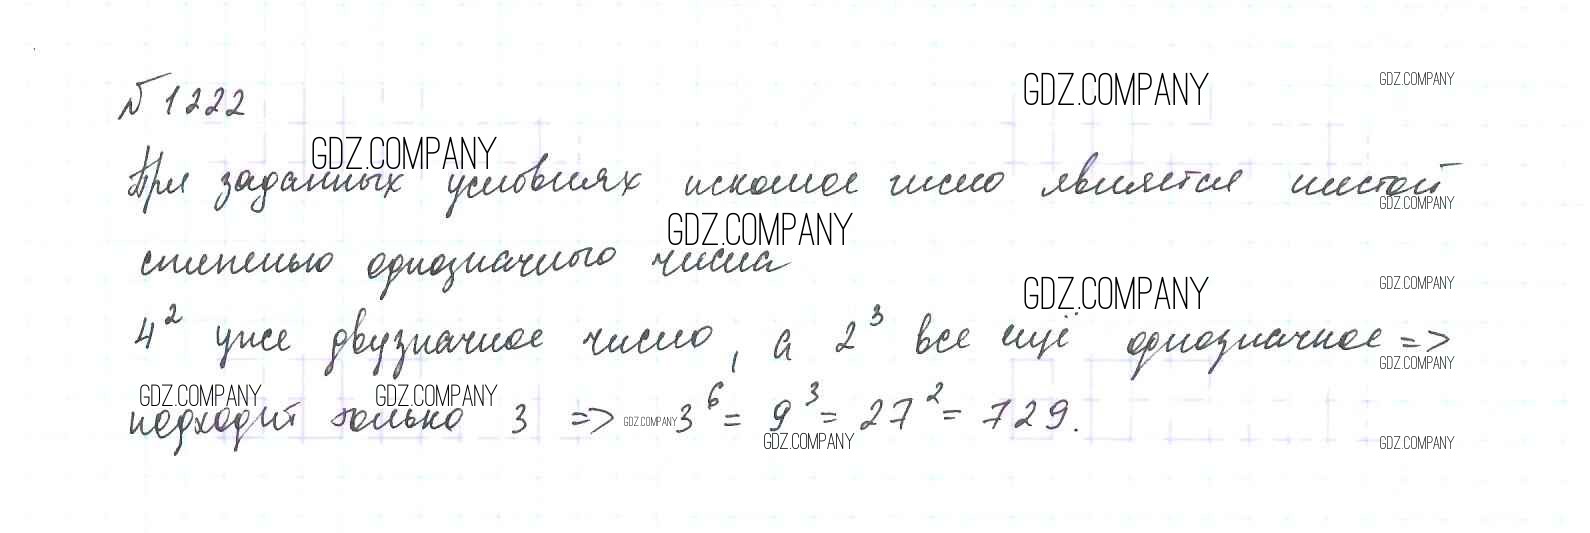 № 1222
При заданных условиях искомое число является шестой
степенью однозначного числа
4² уже двузначное число, а 2³ все ещё однозначное =>
подходит только 3 => 3⁶ = 9³ = 27² = 729.
GDZ.COMPANY
GDZ.COMPANY
GDZ.COMPANY
GDZ.COMPANY
GDZ.COMPANY
GDZ.COMPANY
GDZ.COMPANY
GDZ.COMPANY
GDZ.COMPANY
GDZ.COMPANY
GDZ.COMPANY
GDZ.COMPANY
GDZ.COMPANY